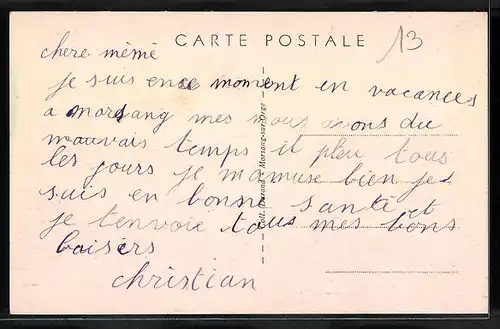 CARTE POSTALE
13
chere mémé
je suis en ce moment en vacances
a morsang mes nous avons du
mauvais temps il pleu tous
les jours je mamuse bien je
suis en bonne santé et
je t'envoie tous mes bons
baisers
christian
Morsang-sur-Orge